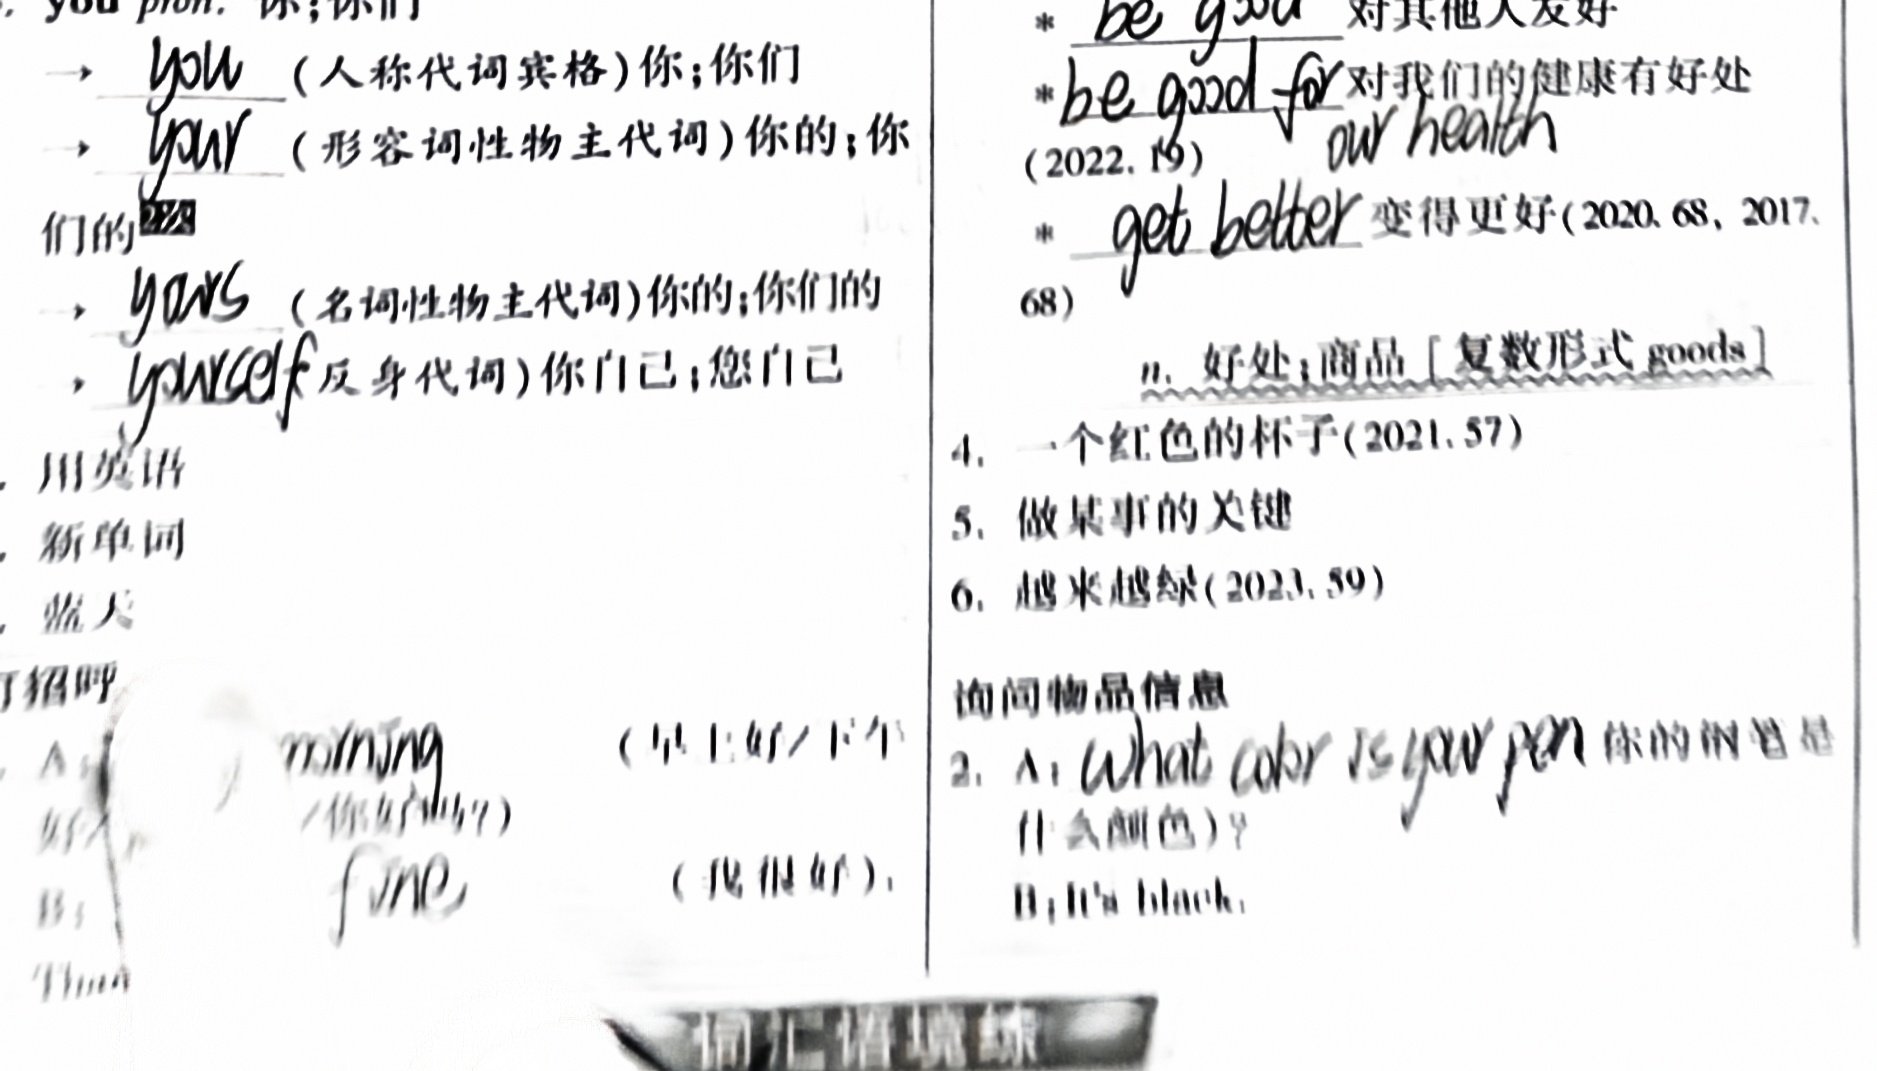 you pron. 你;你们
→ you (人称代词宾格)你;你们
→ your (形容词性物主代词)你的;你
们的
→ yours (名词性物主代词)你的;你们的
→ yourself 反身代词)你自己;您自己
. 用英语
. 新单词
. 蓝天
打招呼
A: morning (早上好/下午
好/ /你好吗?)
B: fine (我很好).
* be good 对其他人友好
* be good for 对我们的健康有好处
our health
(2022. 19)
* get better 变得更好(2020. 68, 2017.
68)
n. 好处;商品[复数形式 goods]
4. 一个红色的杯子(2021. 57)
5. 做某事的关键
6. 越来越绿(2023. 59)
询问物品信息
2. A: What color is your pen 你的钢笔是
什么颜色)?
B: It's black.
词汇语境练